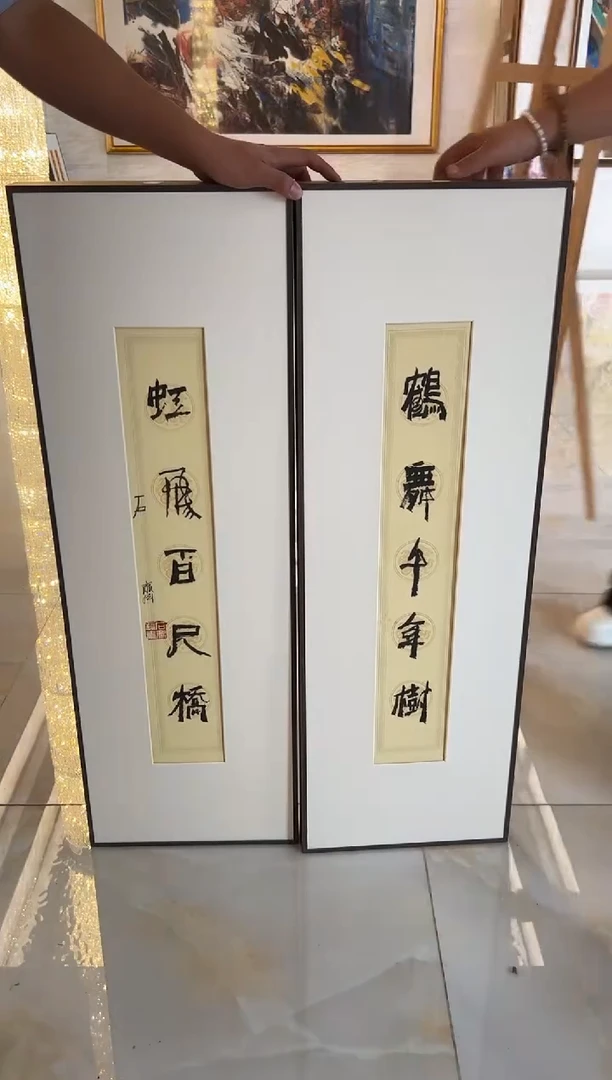 鶴舞千年樹
虹飛百尺橋
石